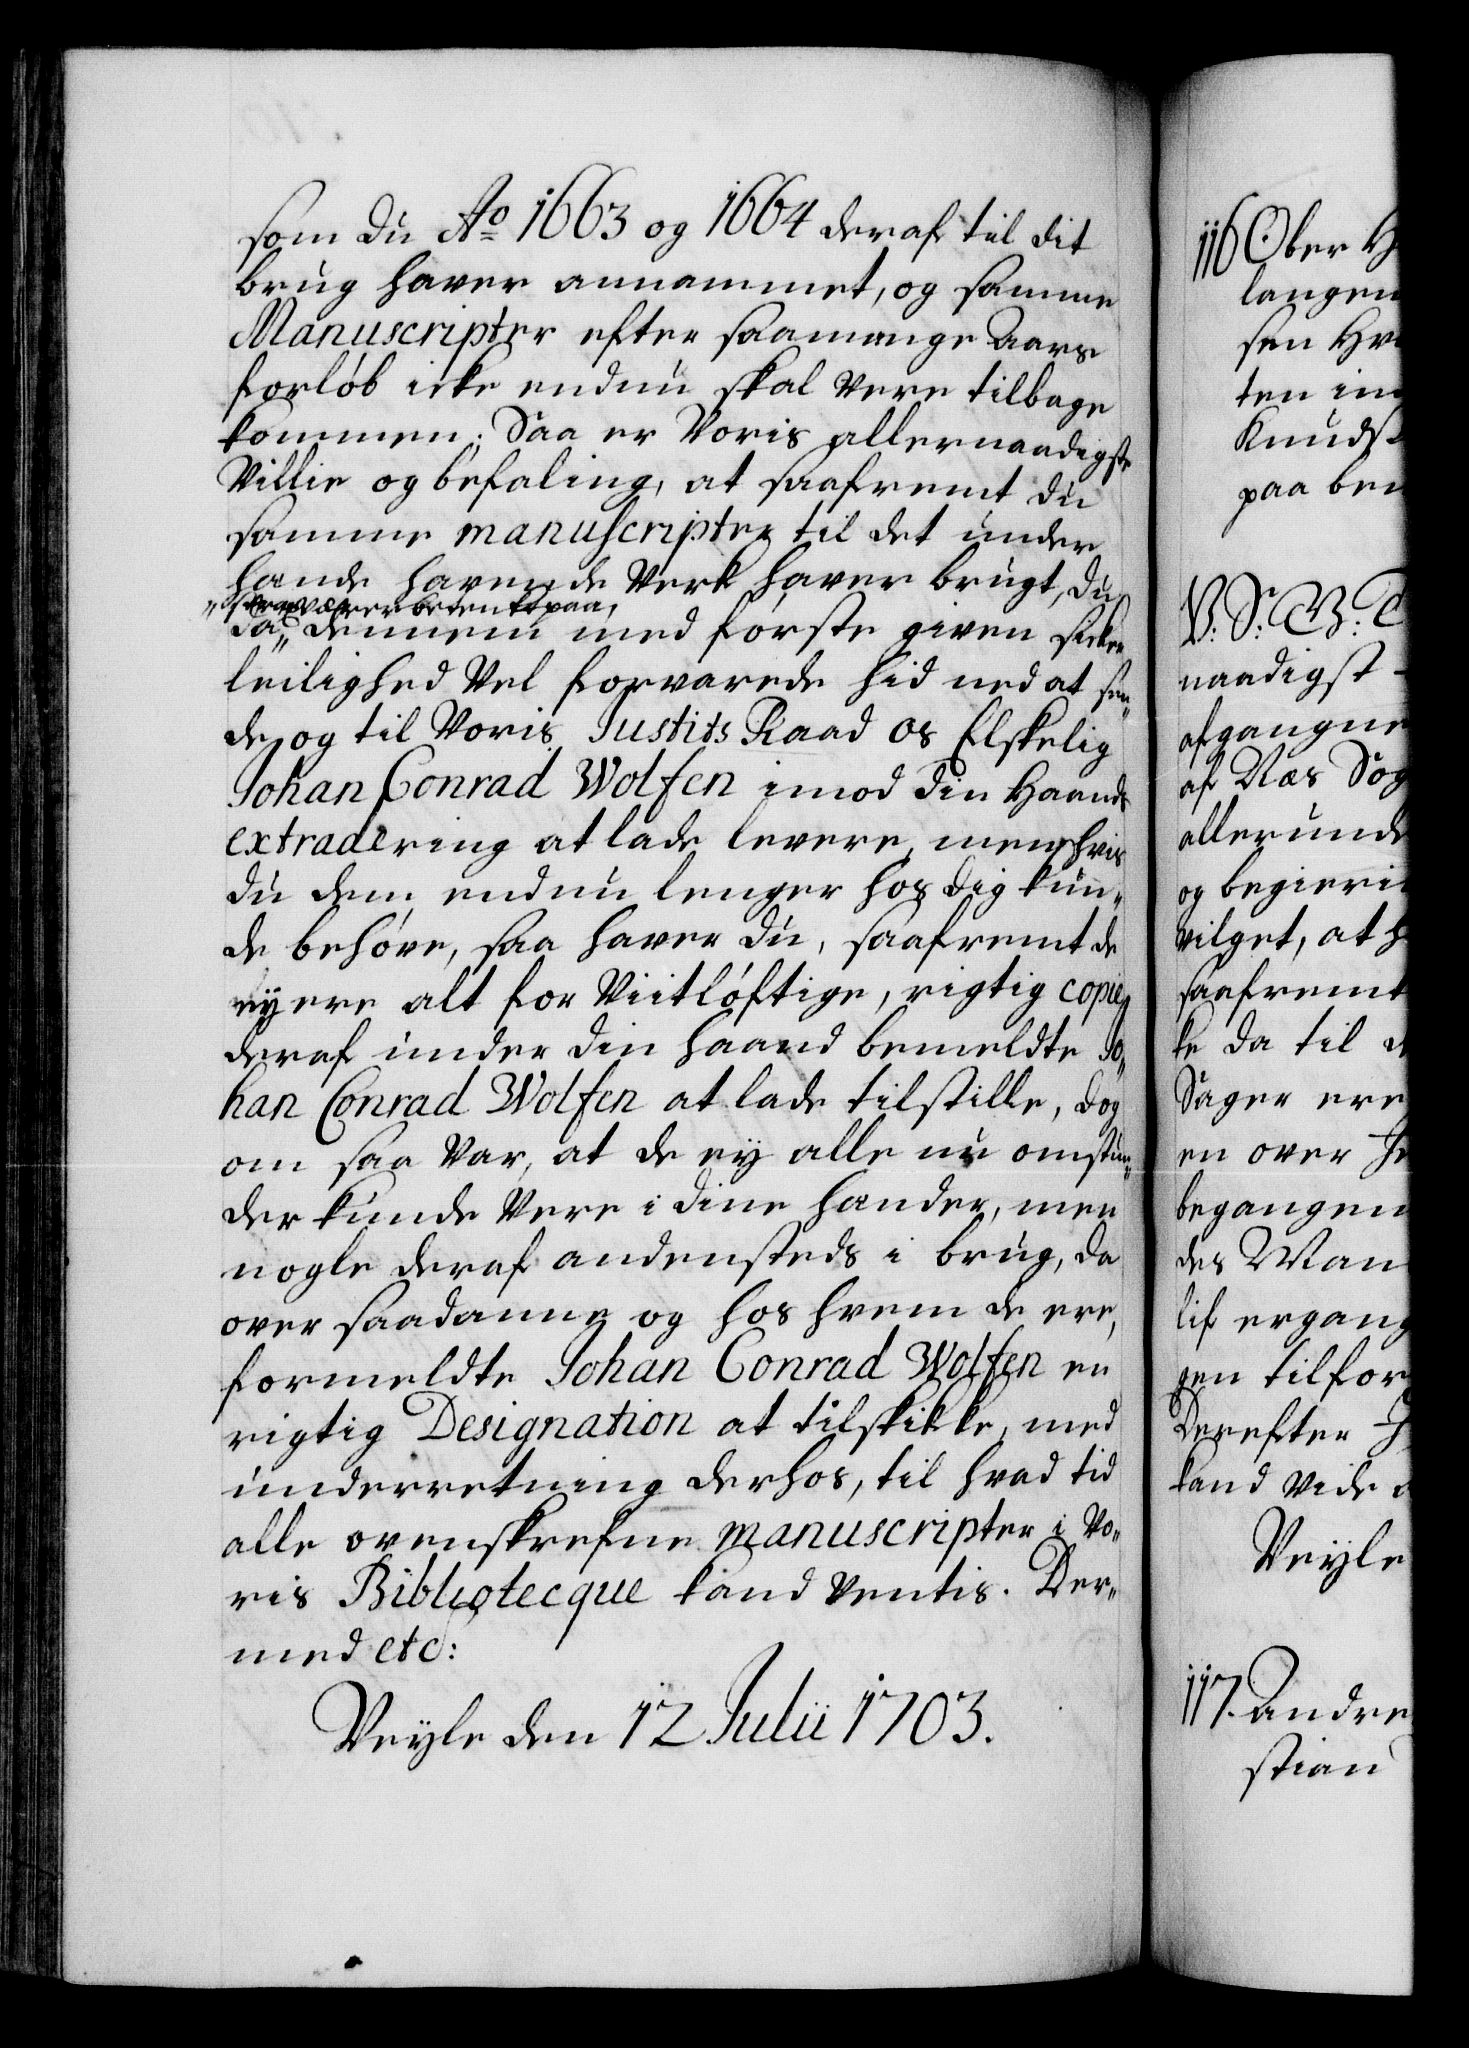 som du Ao 1663 og 1664 deraf til dit
brug hafver annammet, og samme
Manuscripter efter saamange Aars
forløb icke endnu skal Vere tilbage
kommen; Saa er Voris allernaadigste
Villie og befaling, at saafremt du
samme manuscripter til det under
hande hafvende Verk hafver brugt, du
da dennem med første given sicker
leilighed Vel forvarede hid ned at sen„
de, og til Voris Justits Raad os Elskelig
Johan Conrad Wolfen imod din Haands
extradering at lade levere, men hvis
du dem endnu lenger hos dig kun„
de behøve, saa hafver du, saafremt de
ey ere alt for Viitløftige, rigtig copie
deraf under din haand bemeldte Jo„
han Conrad Wolfen at lade tilstille, dog
om saa Var, at de ey alle nu omstun„
der kunde Vere i dine hænder, men
nogle deraf andensteds i brug, da
over saadanne og hos hvem de ere,
formeldte Johan Conrad Wolfen en
rigtig Designation at tilskikke, med
underretning derhos, til hvad tid
alle ovenskrefne manuscripter i Vo„
ris Bibliotecque kand Ventis. Der„
med etc:
Veyle den 12 Julii 1703.
116 Ober
langen
sen
ten
Knuds
paa
V: S: G: V:
naadigst
afgangne
af Næs Sog
allerunde
og begierin
vilget, at
saafremt
ke da til
Sager ere
en over
begangen
des Man
lif ergang
gen tilfor
Derefter
kand vide
Veyle
117. Andre
stian